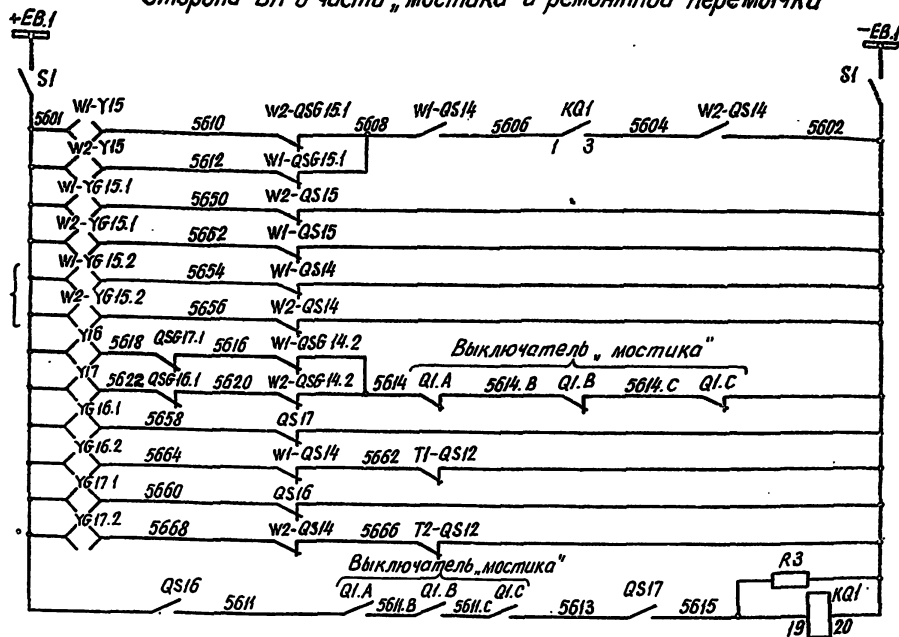 Сторона ВН в части „мостика" и ремонтной перемычки
+ЕВ.1 -ЕВ.1
S1 S1
W1-Y15 W2-QSG15.1 W1-QS14 KQ1 W2-QS14
5601 5610 5608 5606 1 3 5604 5602
W2-Y15 5612 W1-QSG15.1
W1-YG15.1 5650 W2-QS15
W2-YG15.1 5652 W1-QS15
W1-YG15.2 5654 W1-QS14
W2-YG15.2 5656 W2-QS14
Y16 5618 QSG17.1 5616 W1-QSG14.2
Выключатель „мостика"
Y17 5622 QSG16.1 5620 W2-QSG14.2 5614 Q1.A 5614.B Q1.B 5614.C Q1.C
YG16.1 5658 QS17
YG16.2 5664 W1-QS14 5662 T1-QS12
YG17.1 5660 QS16
YG17.2 5668 W2-QS14 5666 T2-QS12
Выключатель „мостика"
R3
QS16 5611 Q1.A 5611.B Q1.B 5611.C Q1.C 5613 QS17 5615 KQ1
19 20